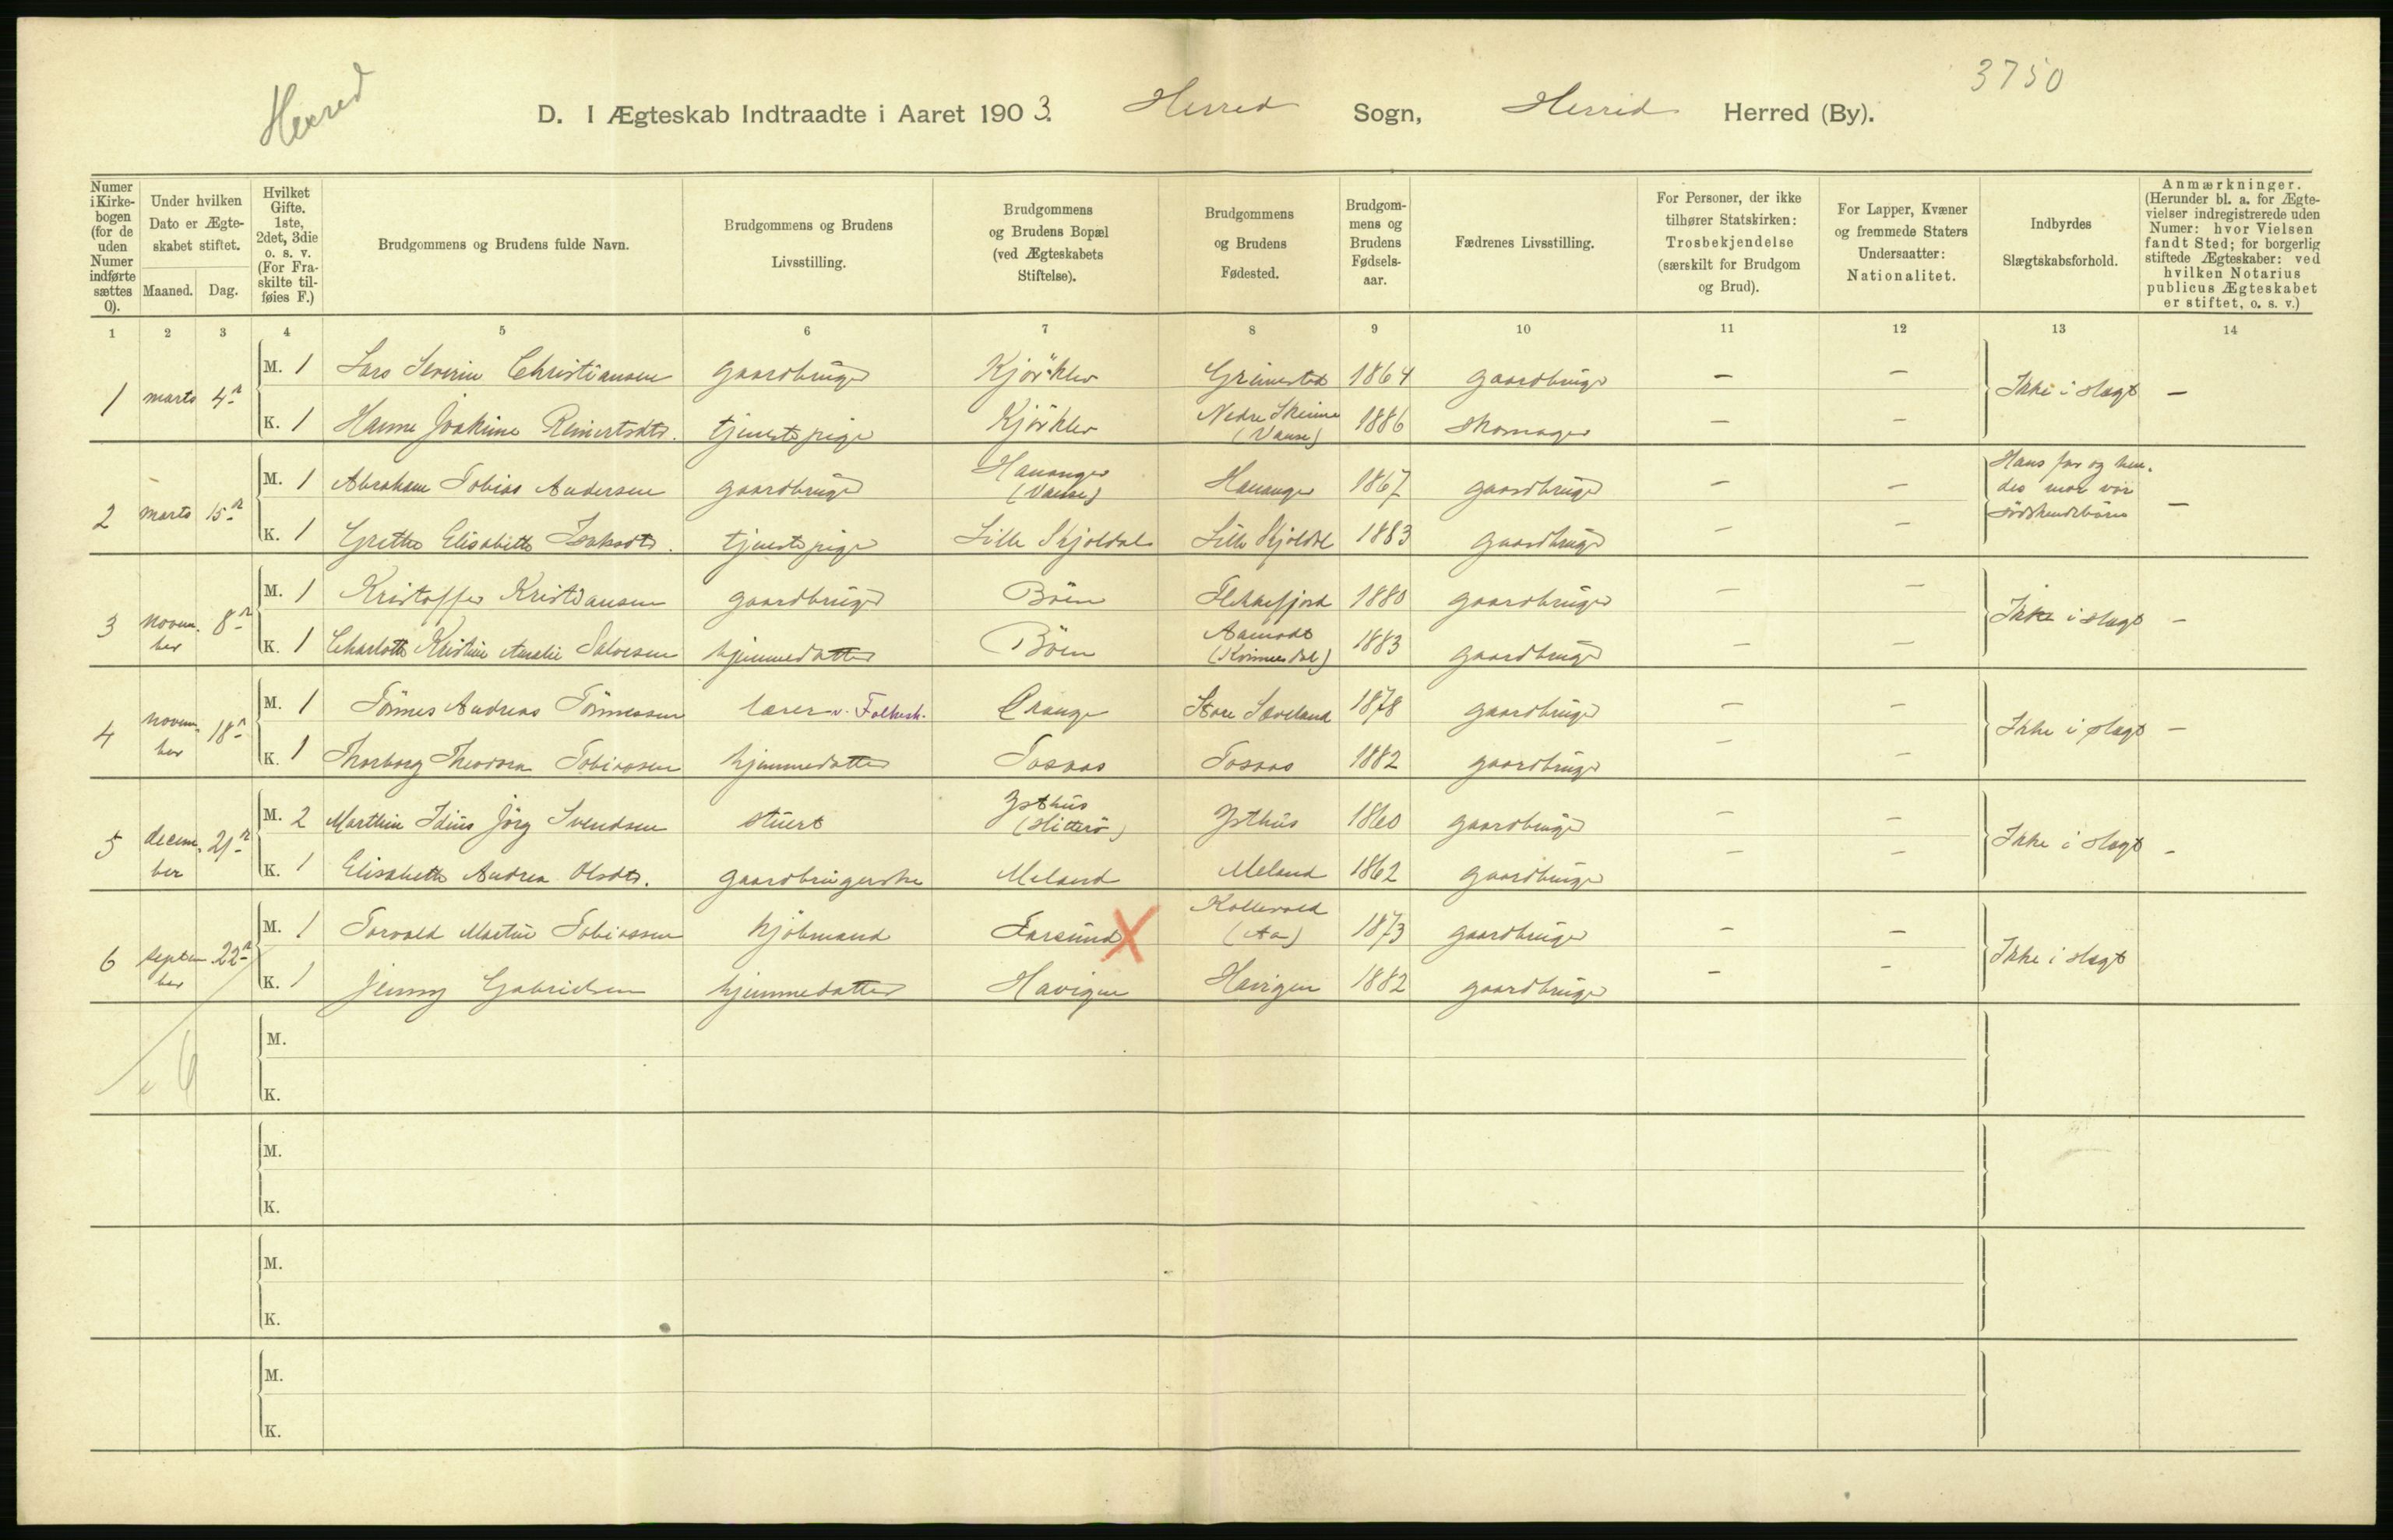 Herred
3750
D. I Ægteskab Indtraadte i Aaret 1903. Herred Sogn, Herred Herred (By).
Numer i Kirkebogen (for de uden Numer indførte sættes 0).
Under hvilken Dato er Ægteskabet stiftet.
Maaned. Dag.
Hvilket Gifte. 1ste, 2det, 3die o. s. v. (For Fraskilte tilføies F.)
Brudgommens og Brudens fulde Navn.
Brudgommens og Brudens Livsstilling.
Brudgommens og Brudens Bopæl (ved Ægteskabets Stiftelse).
Brudgommens og Brudens Fødested.
Brudgommens og Brudens Fødselsaar.
Fædrenes Livsstilling.
For Personer, der ikke tilhører Statskirken: Trosbekjendelse (særskilt for Brudgom og Brud).
For Lapper, Kvæner og fremmede Staters Undersaatter: Nationalitet.
Indbyrdes Slægtskabsforhold.
Anmærkninger. (Herunder bl. a. for Ægtevielser indregistrerede uden Numer: hvor Vielsen fandt Sted; for borgerlig stiftede Ægteskaber: ved hvilken Notarius publicus Ægteskabet er stiftet, o. s. v.)
1 2 3 4 5 6 7 8 9 10 11 12 13 14
1 marts 4
M. 1 Lars Severin Christiansen gaardbruger Kjörklev Grimestad 1864 gaardbruger - - Ikke i slægt -
K. 1 Hanne Joakime Reinertsdtr. tjenestepige Kjörklev Nedre Skeime (Vanse) 1886 skomager - -
2 marts 15
M. 1 Abraham Tobias Andersen gaardbruger Hananger (Vanse) Hananger 1867 gaardbruger - - Hans far og hendes mor var södskendebörn -
K. 1 Grethe Elisabeth Isaksdtr. tjenestepige Lille Skjoldal Lille Skjoldal 1883 gaardbruger - -
3 november 8
M. 1 Kristoffer Kristiansen gaardbruger Böen Flekkefjord 1880 gaardbruger - - Ikke i slægt -
K. 1 Charlotte Kristine Amalie Salvesen hjemmedatter Böen Aamodt (Kvinesdal) 1883 gaardbruger - -
4 november 18
M. 1 Tönnes Andreas Tönnessen lærer v. Folkesk. Prange Store Sæveland 1878 gaardbruger - - Ikke i slægt -
K. 1 Thorborg Theodora Tobiassen hjemmedatter Tosaas Tosaas 1882 gaardbruger - -
5 december 21
M. 2 Marthin Idius Jörg Svendsen stuert Ysthus (Hitterö) Ysthus 1860 gaardbruger - - Ikke i slægt -
K. 1 Elisabeth Andrea Olsdtr. gaardbrugerske Meland Meland 1862 gaardbruger - -
6 september 22
M. 1 Torvald Martin Tobiassen kjöbmand Farsund X Kollevold (Aa) 1873 gaardbruger - - Ikke i slægt
K. 1 Jenny Gabrielsen hjemmedatter Havigen Havigen 1882 gaardbruger - -
6
M.
K.
M.
K.
M.
K.
M.
K.